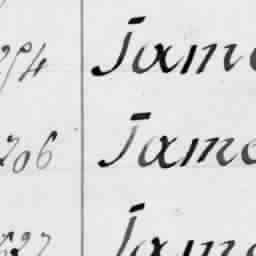 254 Jame
206 Jame
627 Jame